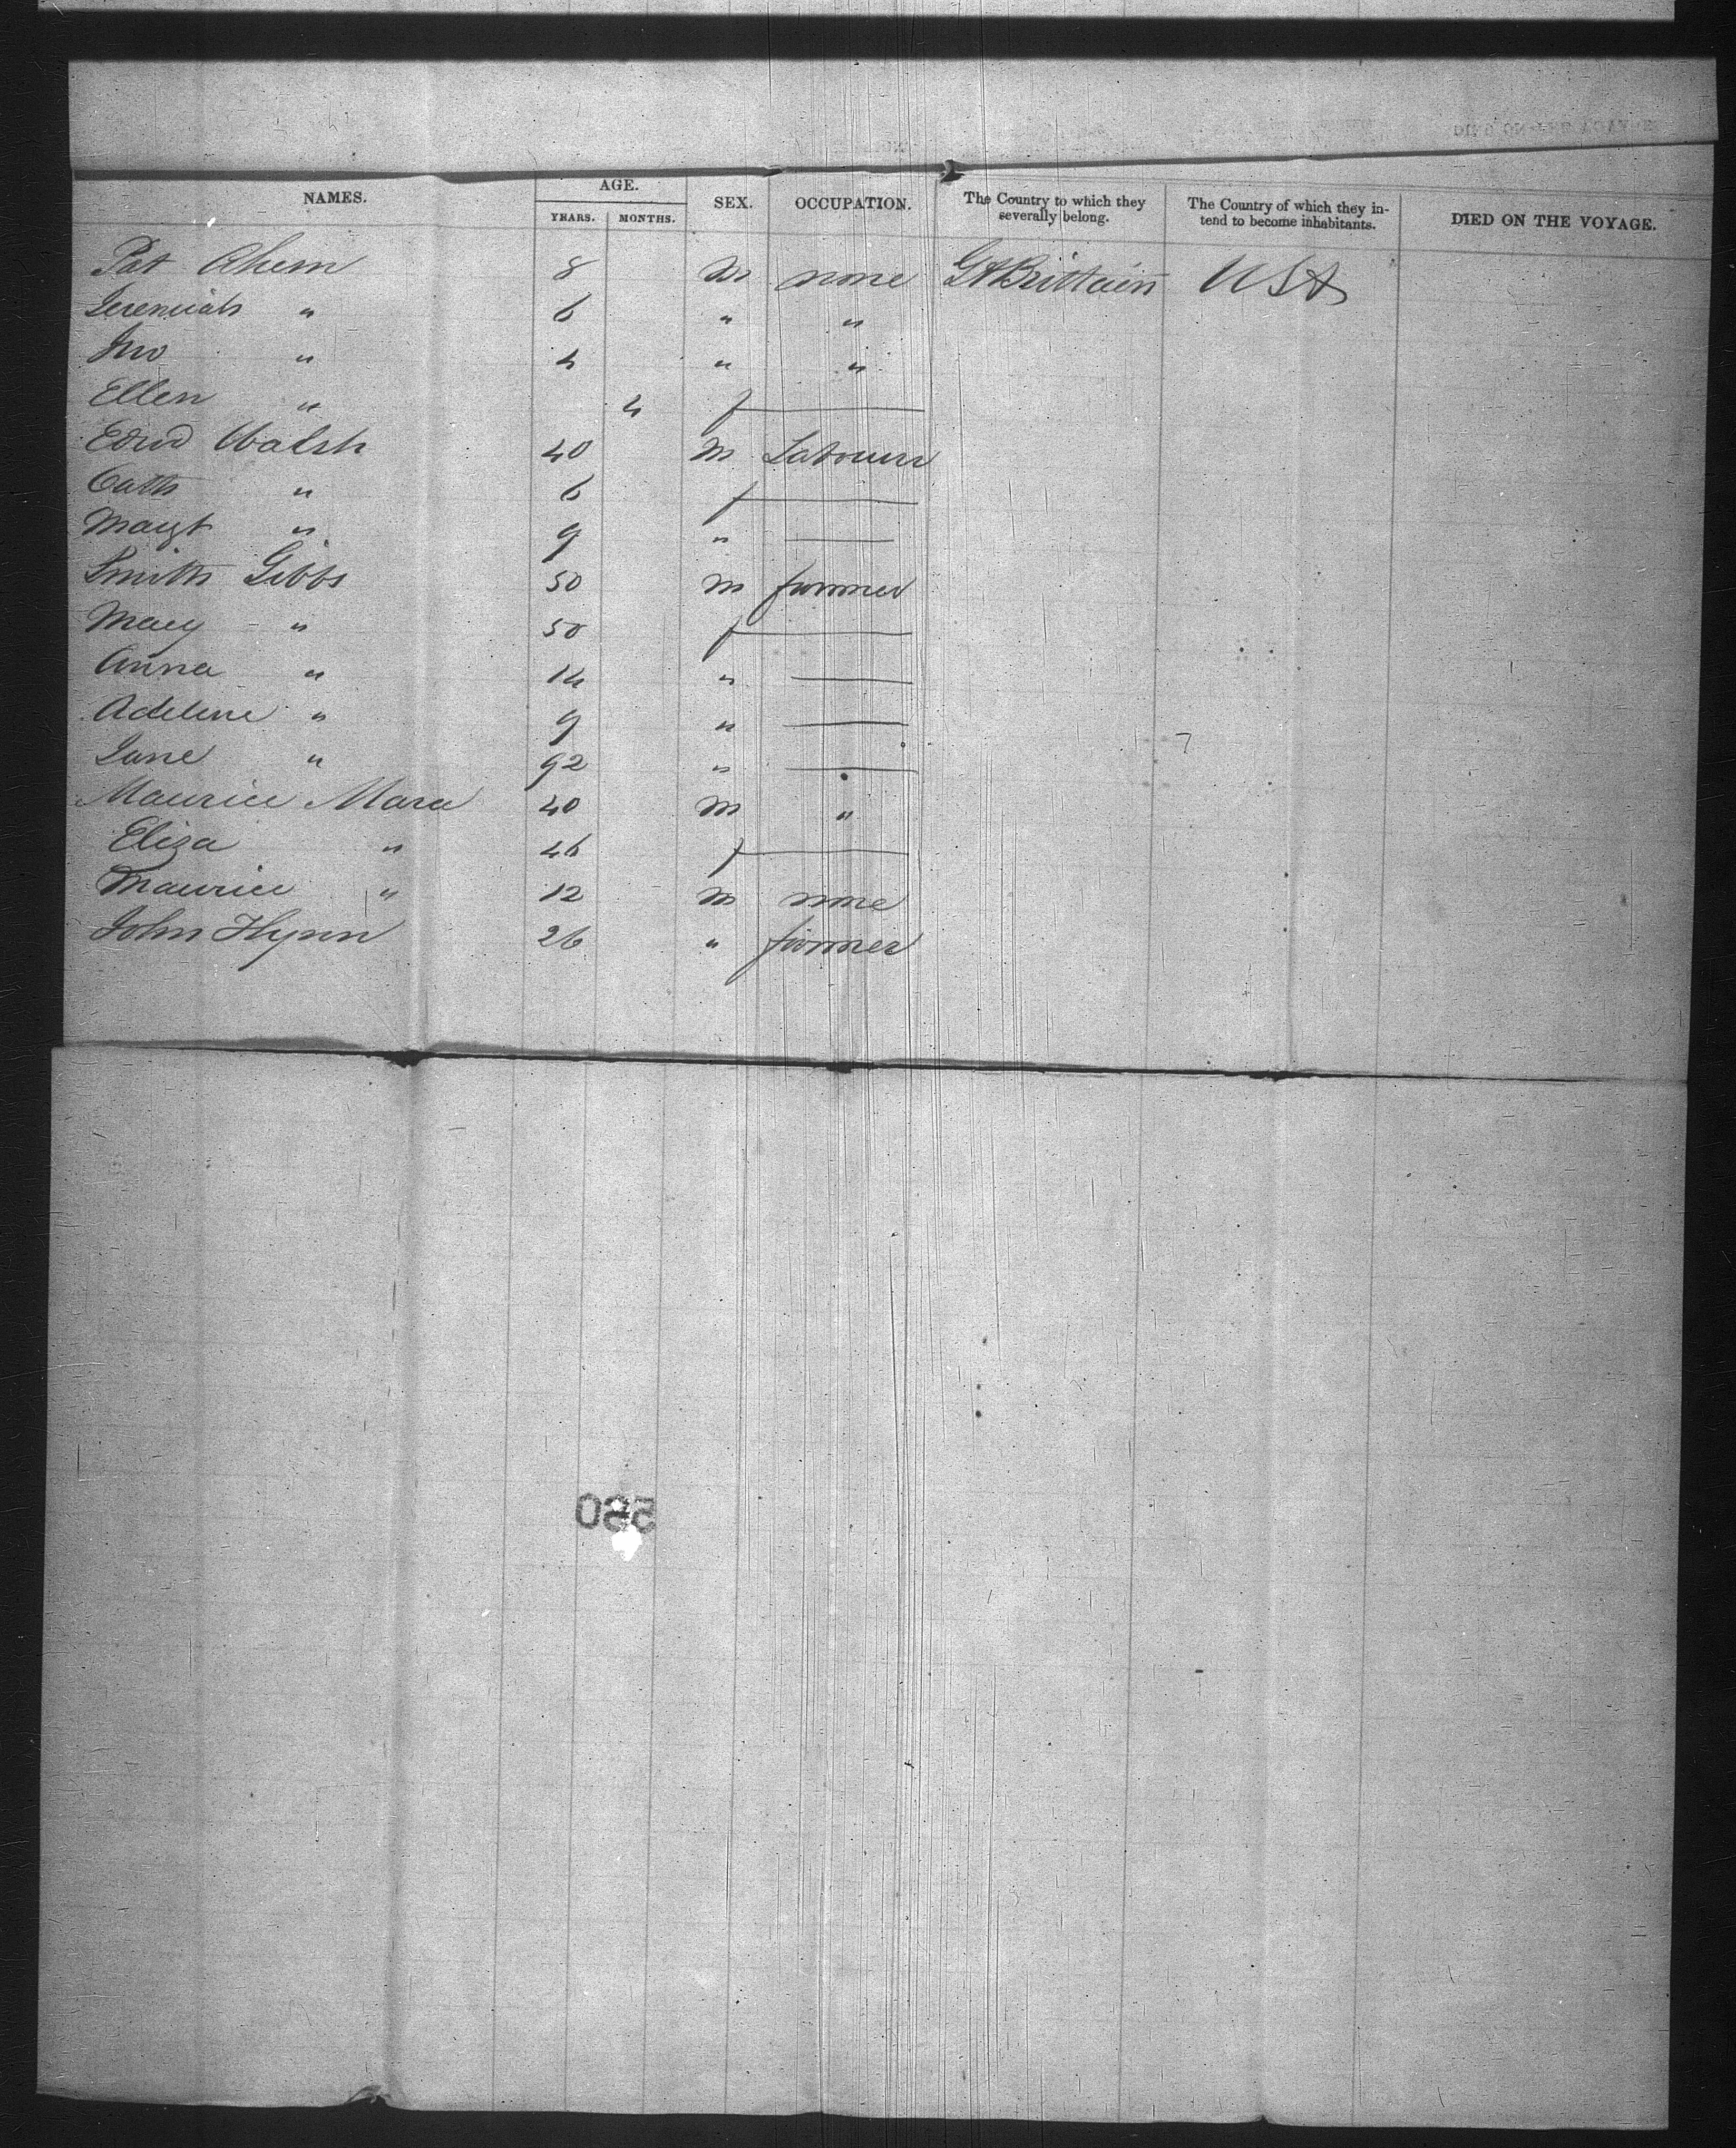 NAMES. AGE. SEX. OCCUPATION. The Country to which they severally belong. The Country of which they in-tend to become inhabitants. DIED ON THE VOYAGE.
YEARS. MONTHS.
Pat Ahern 8 m none Gt Brittain USA
Jeremiah " 6 " "
Jno " 4 " "
Ellen " 4 f
Edwd Walsh 40 m Labourer
Cath " 6 f
Margt " 9 "
Smith Gibbs 50 m farmer
Mary " 50 f
Anna " 14 "
Adeline " 9 "
Jane " 92 "
Maurice Mara 40 m "
Eliza " 46 f
Maurice " 12 m none
John Flynn 26 " farmer
580